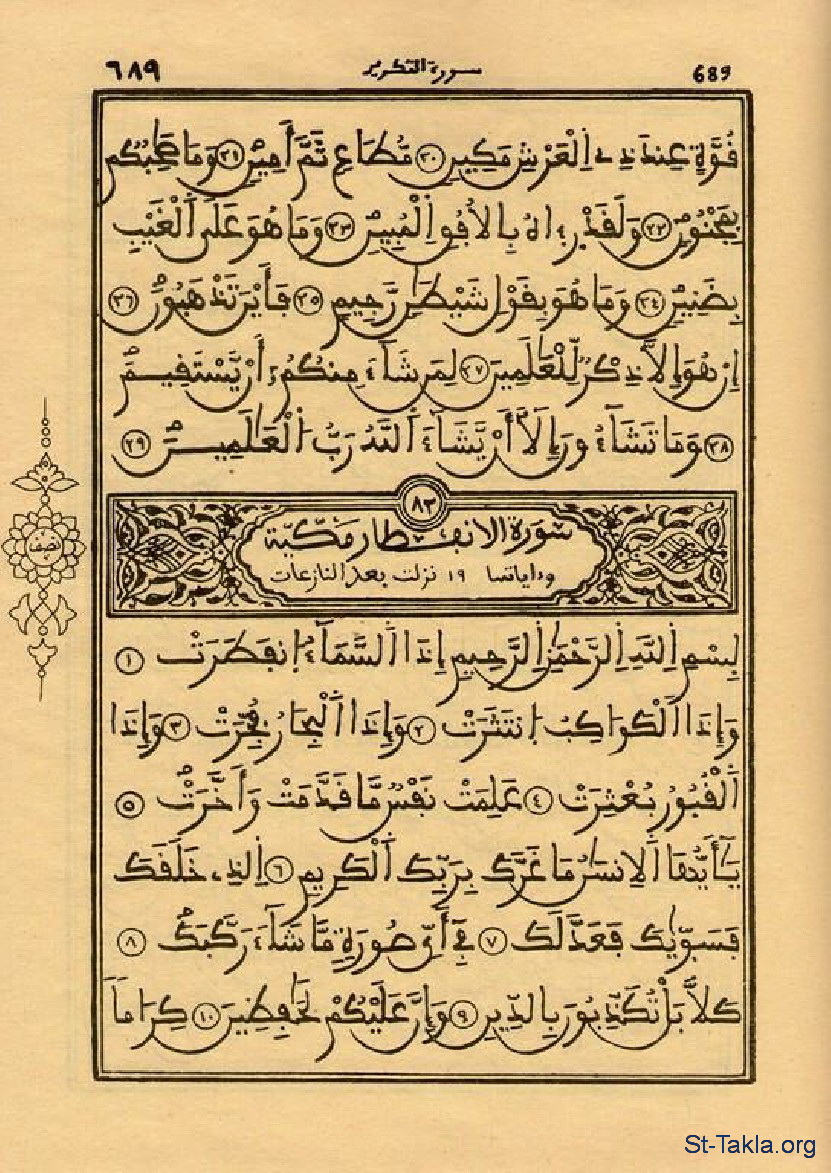 ٦٨٩ سورة التكوير 689
قُوَّةٍ عِندَ ذِے اِلْعَرْشِ مَكِينٍ ٢٠ مُّطَاعٍ ثَمَّ أَمِينٍ ٢١ وَمَا صَٰحِبُكُم
بِمَجْنُونٍ ٢٢ وَلَقَدْ رِءَاهُ بِالْأُفُقِ اِلْمُبِينِ ٢٣ وَمَا هُوَ عَلَى اَلْغَيْبِ
بِضَنِينٍ ٢٤ وَمَا هُوَ بِقَوْلِ شَيْطَٰنٍ رَّجِيمٍ ٢٥ فَأَيْنَ تَذْهَبُونَ ٢٦
إِنْ هُوَ إِلَّا ذِكْرٌ لِّلْعَٰلَمِينَ ٢٧ لِمَن شَآءَ مِنكُمُۥٓ أَنْ يَّسْتَقِيمَ
٢٨ وَمَا تَشَآءُونَ إِلَّآ أَنْ يَّشَآءَ اَللَّهُ رَبُّ اُلْعَٰلَمِينَ ٢٩
٨٢
سورة الانفطار مكية
وءاياتها ١٩ نزلت بعد النازعات
نصف
بِسْمِ اِللَّهِ اِلرَّحْمَٰنِ اِلرَّحِيمِ إِذَا اَلسَّمَآءُ اُ۪نفَطَرَتْ ١
وَإِذَا اَلْكَوَاكِبُ اُ۪نتَثَرَتْ ٢ وَإِذَا اَلْبِحَارُ فُجِّرَتْ ٣ وَإِذَا
اَلْقُبُورُ بُعْثِرَتْ ٤ عَلِمَتْ نَفْسٌ مَّا قَدَّمَتْ وَأَخَّرَتْ ٥
يَٰٓأَيُّهَا اَلْإِنسَٰنُ مَا غَرَّكَ بِرَبِّكَ اَلْكَرِيمِ ٦ اِلذِے خَلَقَكَ
فَسَوَّيٰكَ فَعَدَّلَكَ ٧ فِےٓ أَيِّ صُورَةٍ مَّا شَآءَ رَكَّبَكَ ٨
كَلَّا بَلْ تُكَذِّبُونَ بِالدِّينِ ٩ وَإِنَّ عَلَيْكُمْ لَحَٰفِظِينَ ١٠ كِرَاماً
St-Takla.org